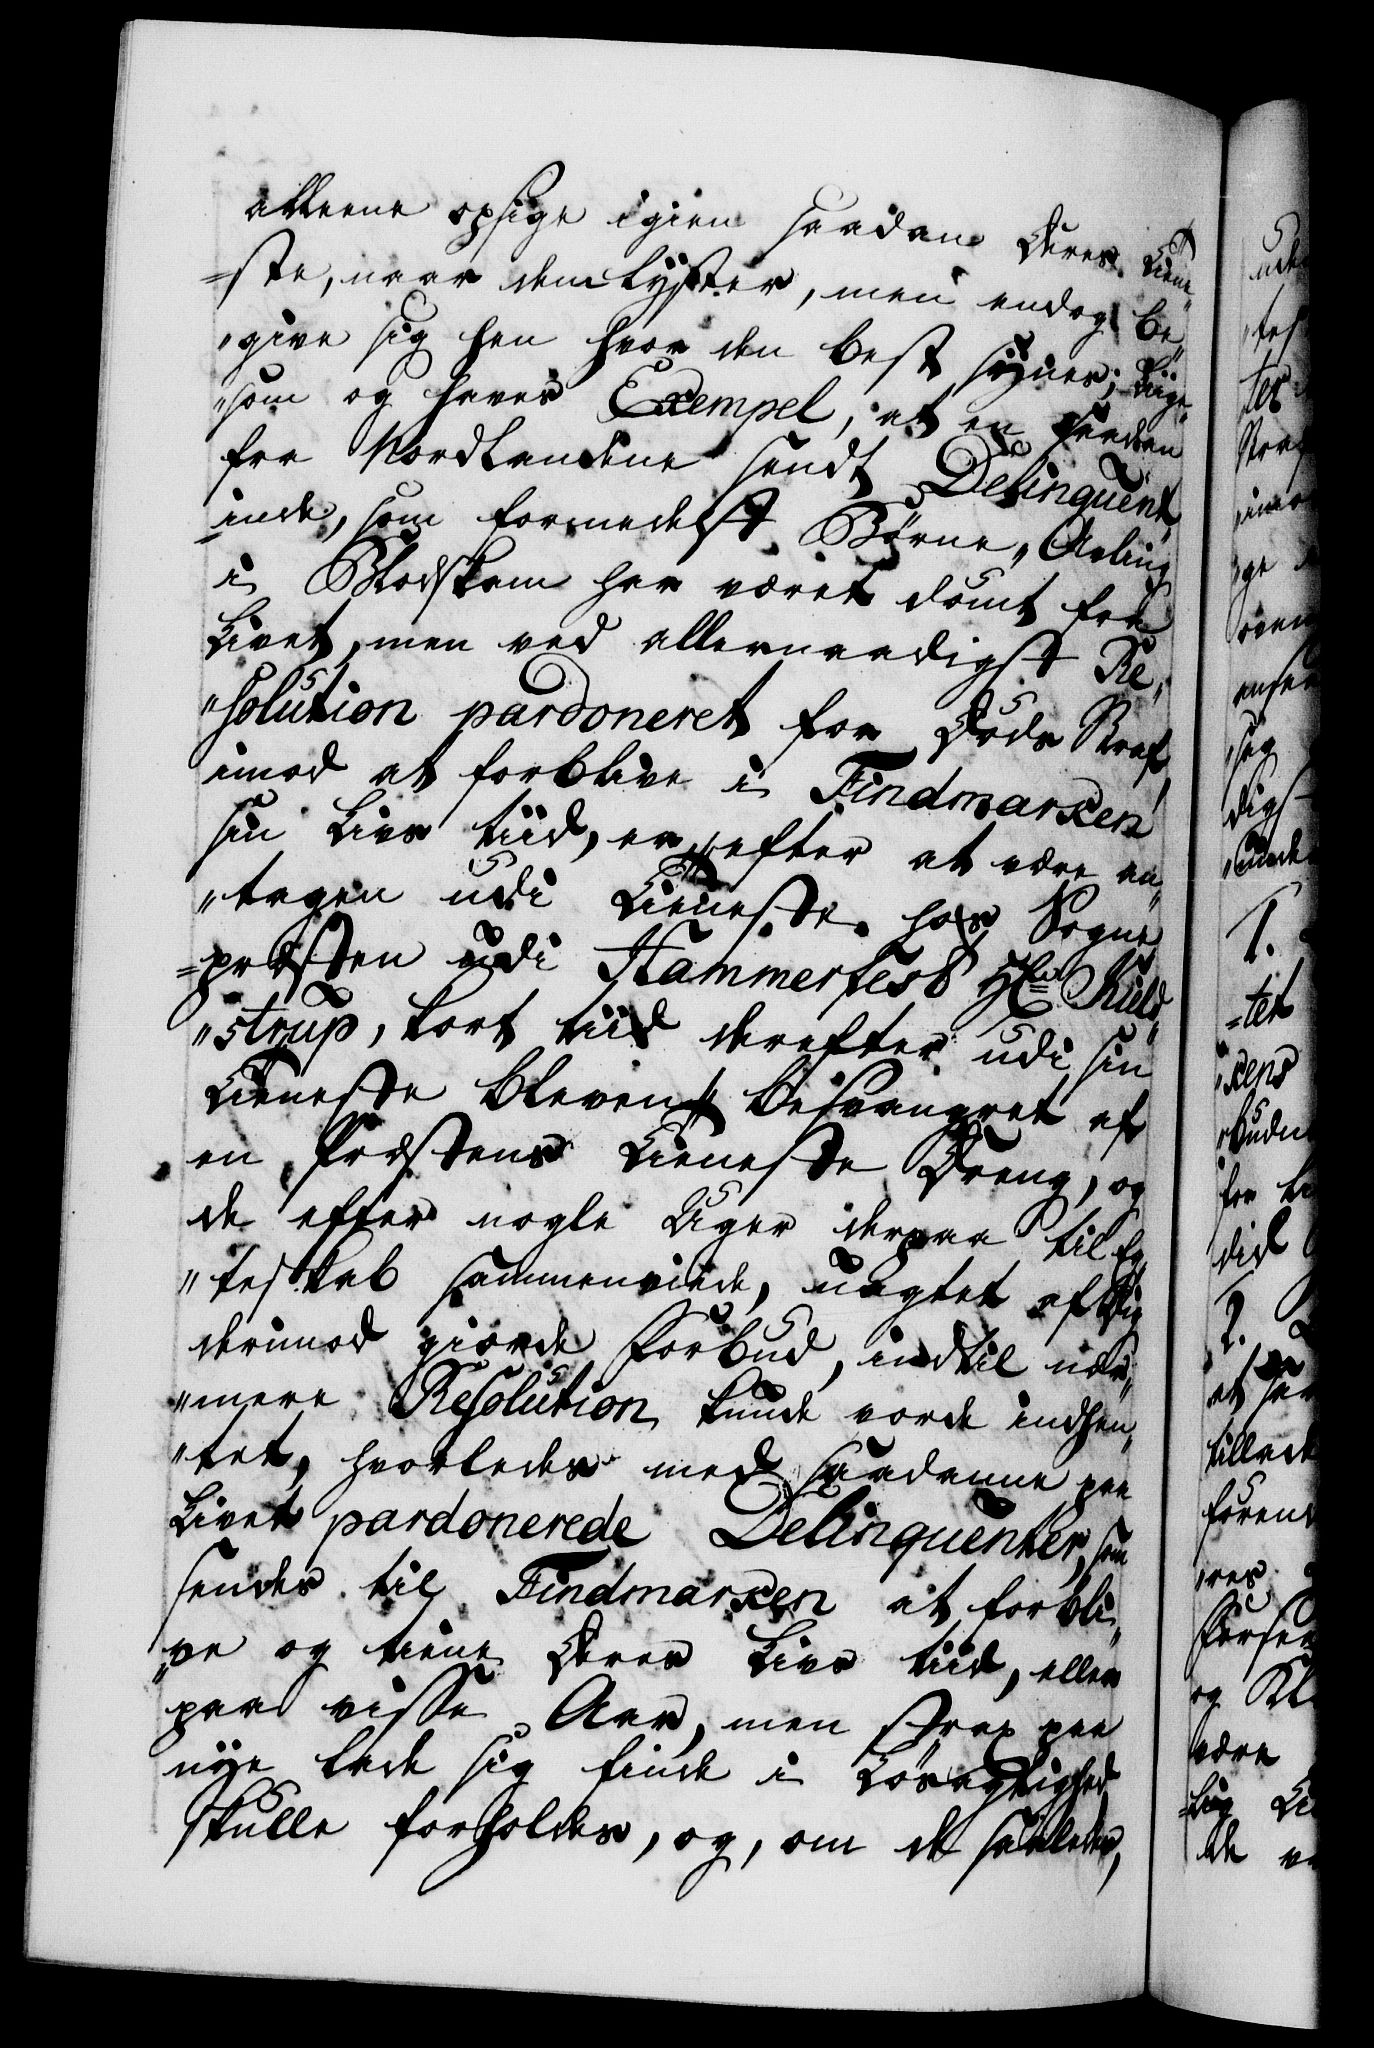 alleene opsige igien saadan deres Tiene-
=ste, naar dem lyster, men endog be-
"give sig hen hvor dem best synes; Liige-
"som og haves Exempel, at en saadan
fra Nordlandene sendt Delinquent-
=inde, som formedelst Børne-Avling
i Blodskam har været dømt fra
Livet, men ved allernaadigst Re-
"solution pardoneret for Døds Straf,
imod at forblive i Findmarken
sin Livs tiid, er, efter at være an-
"tagen udi Tieneste hos Sogne-
=præsten udi Hammerfest Hr. Kield-
"strup, kort tiid derefter udi sin
Tieneste bleven besvangret af
en Præstens Tieneste Dreng, og
de efter nogle Uger derpaa til Eg-
"teskab sammenviede, uagtet af dig
derimod giorde Forbud, indtil nær-
"mere Resolution kunde vorde indhen-
"tet, hvorledes med saadanne paa
Livet pardonerede Delinquenter, som
sendes til Findmarken at forbli-
"ve og tiene deres Livs tiid, eller
paa visse Aar, men strax paa
nye lade sig finde i Løsagtighed
skulle forholdes, og, om de saaledes,